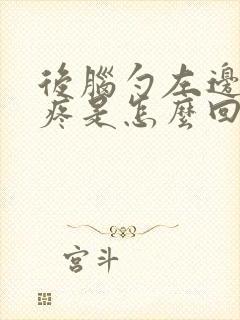 後腦勺左邊
疼是怎麼回
宮斗